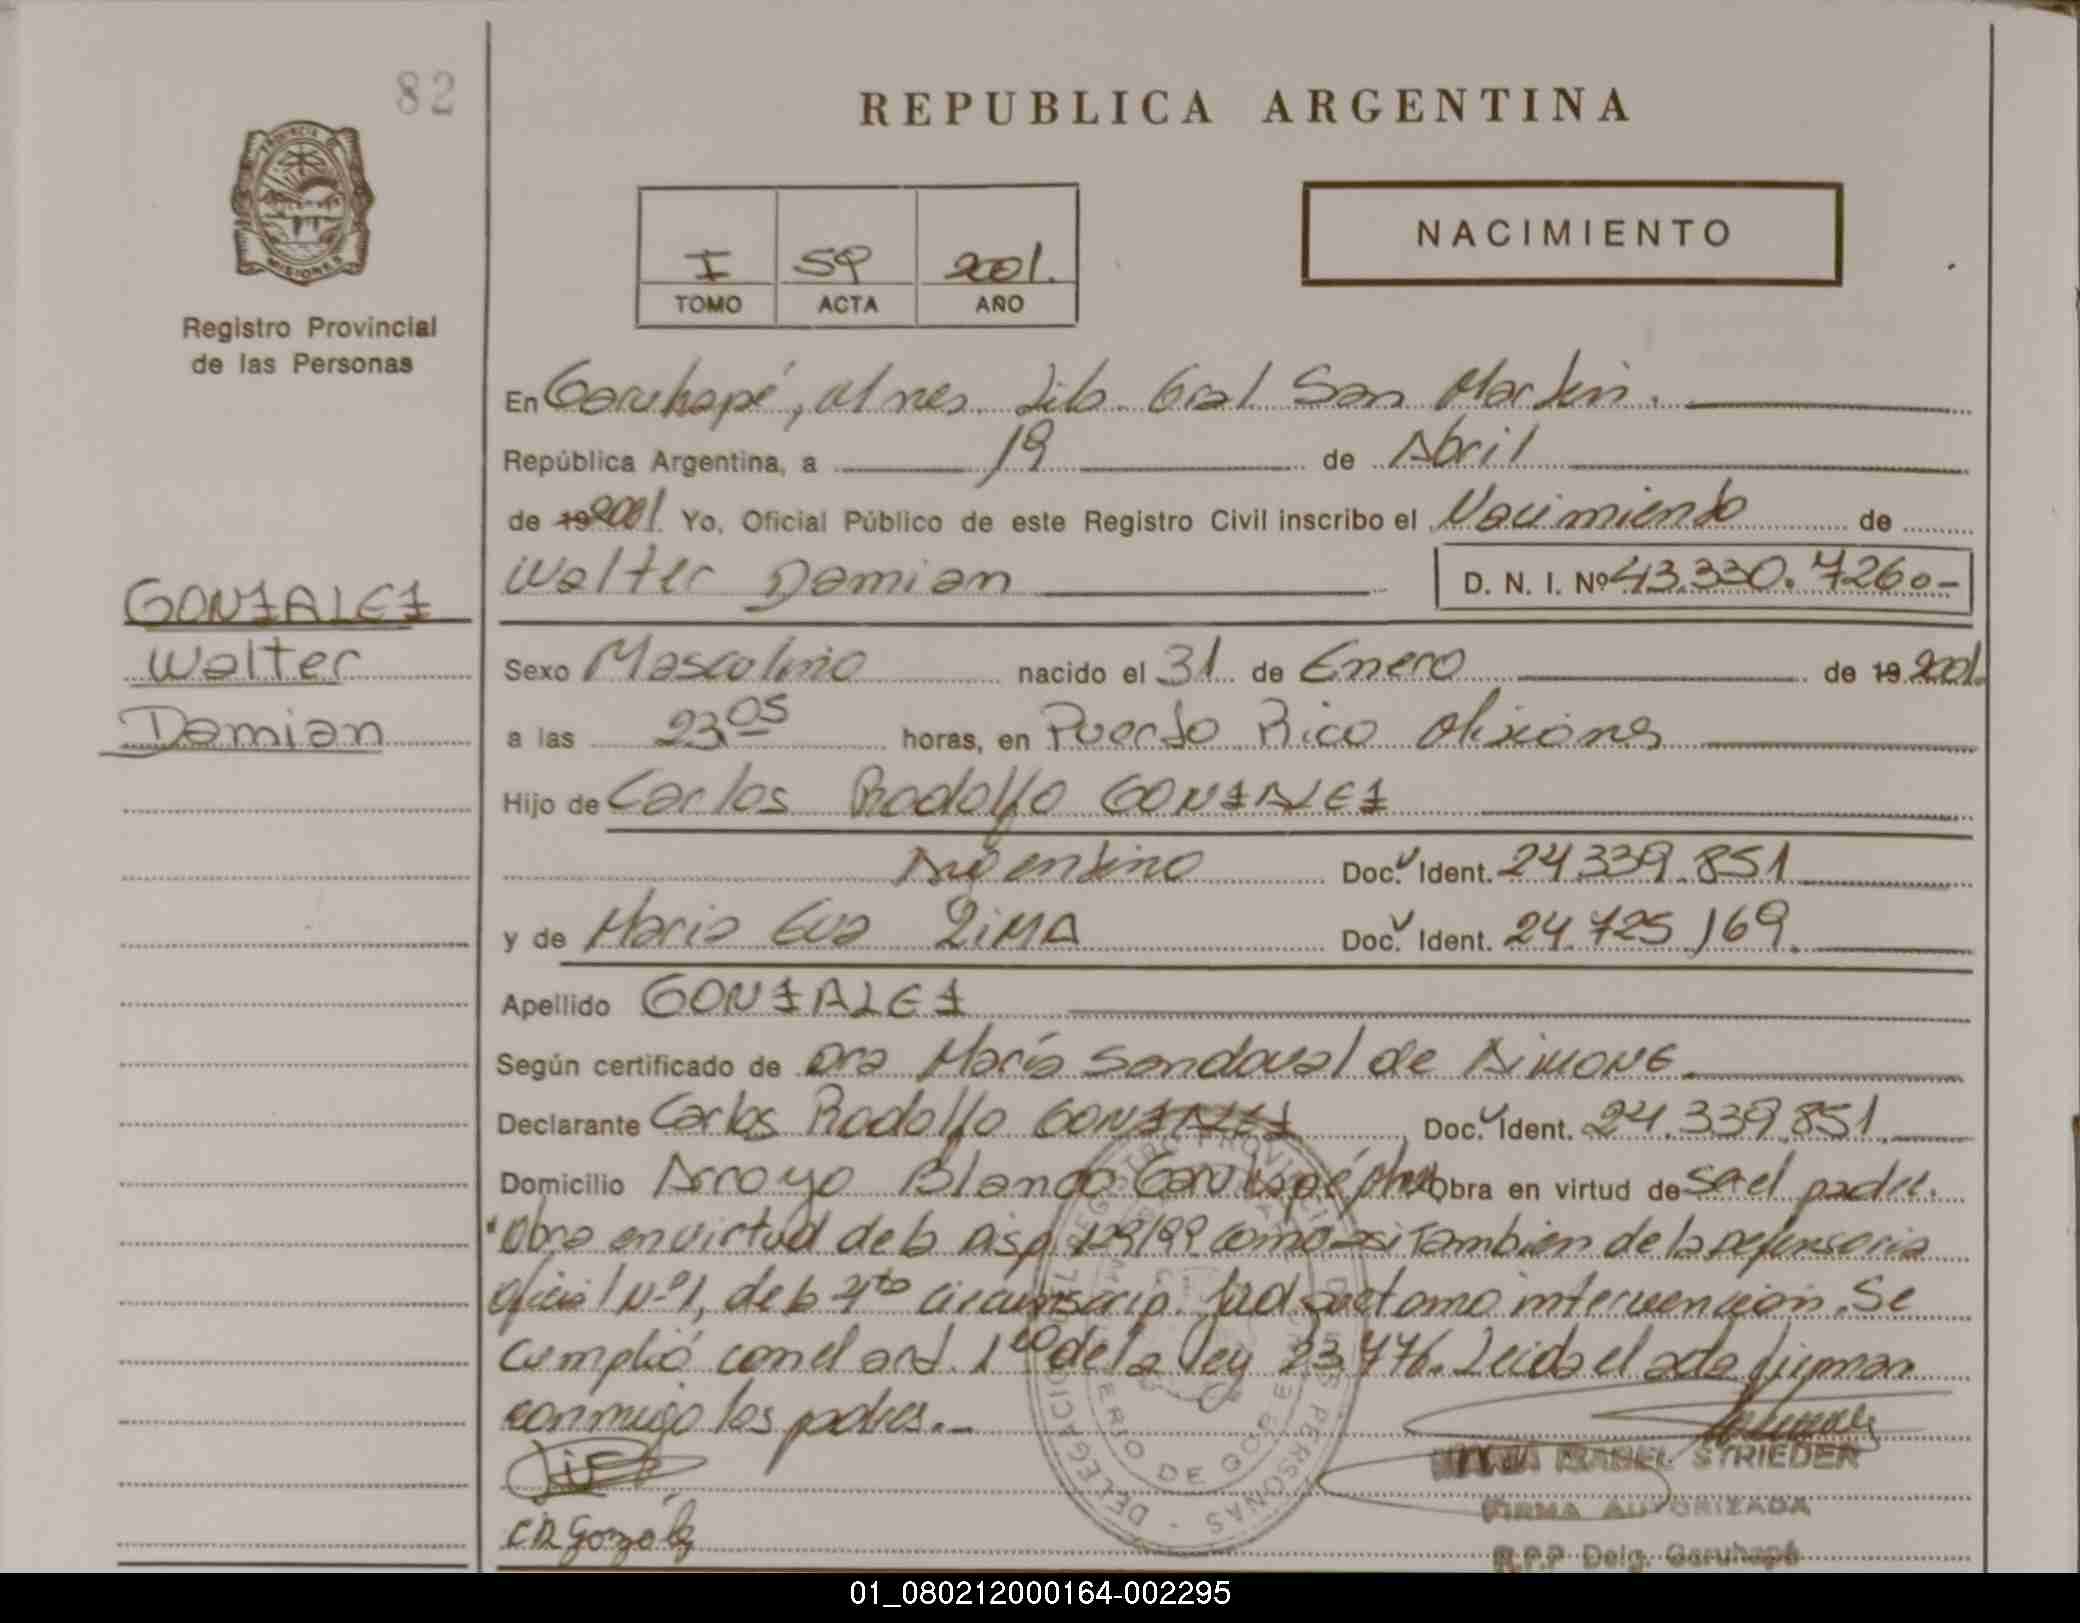 82
REPUBLICA ARGENTINA
PROVINCIA
MISIONES
Registro Provincial
de las Personas
I 59 2001.
TOMO ACTA AÑO
NACIMIENTO
En Garuhapé, Mnes. Lib. Gral San Martin.
República Argentina, a 19 de Abril
de 19 2001 Yo, Oficial Público de este Registro Civil inscribo el Nacimiento de
Walter Damian D. N. I. Nº 43.330.726.-
GONZALEZ
Walter
Damian
Sexo Masculino nacido el 31 de Enero de 19 2001.
a las 23 05 horas, en Puerto Rico Misiones
Hijo de Carlos Rodolfo GONZALEZ
Argentino Doc. Ident. 24.339.851
y de Maria Eva LIMA Doc. Ident. 24.725.169.
Apellido GONZALEZ
Según certificado de Dra María Sandoval de SIMONE
Declarante Carlos Rodolfo GONZALEZ Doc. Ident. 24.339.851
Domicilio Arroyo Blanco Garuhapé Mnes Obra en virtud de ser el padre.
Obra en virtud de la Disp 129/99 como asi Tambien de la Defensoria
Oficial Nº1, de la 4ta Circunscrip. Jud que tomo intervencion. Se
cumplió con el art. 1ro de la ley 23.776. Leida el acta firman
conmigo los padres.-
CR Gonzalez
ISABEL STRIEDER
FIRMA AUTORIZADA
R.P.P Delg. Garuhapé
01_080212000164-002295